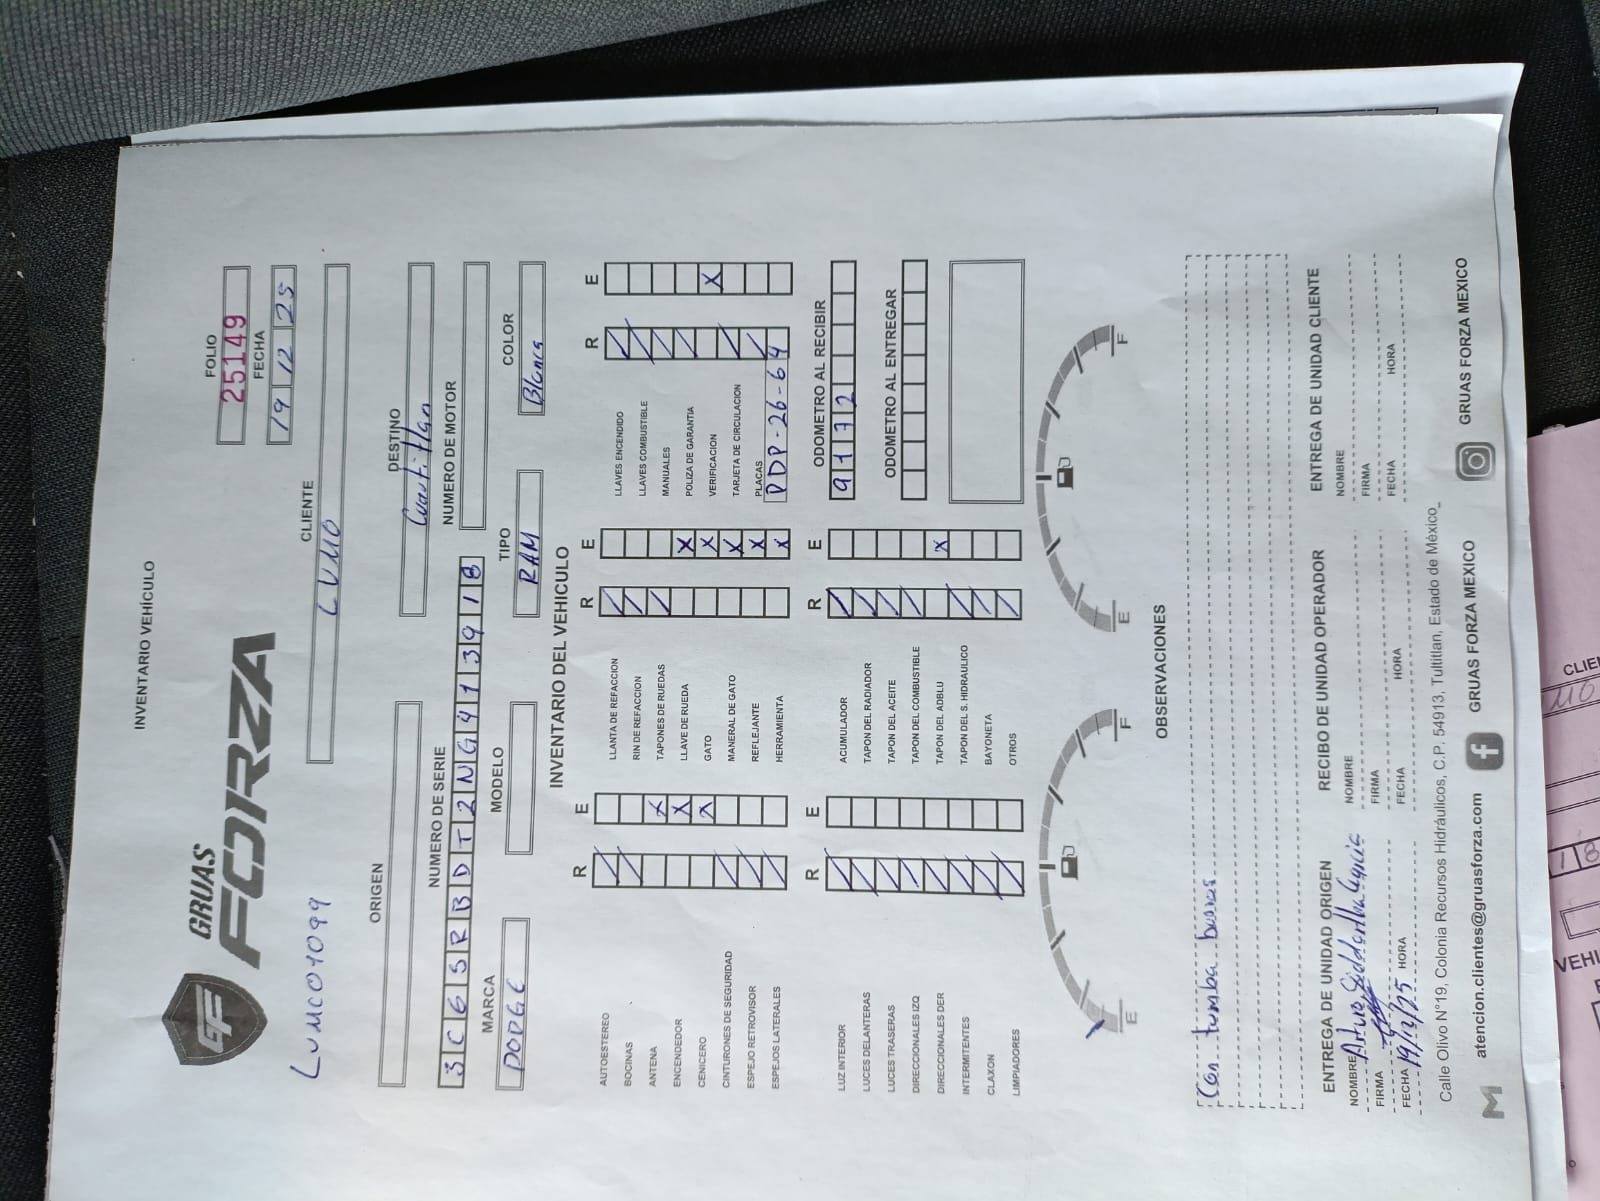 INVENTARIO VEHÍCULO
GRUAS
FORZA
FOLIO
25149
FECHA
19 12 25
LUMO01099
CLIENTE
LUMO
ORIGEN
DESTINO
Cuautitlan
NUMERO DE SERIE
3C6SRBDT2NG413918
NUMERO DE MOTOR
MARCA
DODGE
MODELO
TIPO
RAM
COLOR
Blanca
INVENTARIO DEL VEHICULO
R E
AUTOESTEREO /
BOCINAS /
ANTENA X
ENCENDEDOR X
CENICERO X
CINTURONES DE SEGURIDAD /
ESPEJO RETROVISOR /
ESPEJOS LATERALES /
R E
LLANTA DE REFACCION /
RIN DE REFACCION /
TAPONES DE RUEDAS /
LLAVE DE RUEDA X
GATO X
MANERAL DE GATO X
REFLEJANTE X
HERRAMIENTA X
R E
LLAVES ENCENDIDO /
LLAVES COMBUSTIBLE /
MANUALES /
POLIZA DE GARANTIA /
VERIFICACION X
TARJETA DE CIRCULACION /
PLACAS /
PDP-26-64
R E
LUZ INTERIOR /
LUCES DELANTERAS /
LUCES TRASERAS /
DIRECCIONALES IZQ /
DIRECCIONALES DER /
INTERMITENTES /
CLAXON /
LIMPIADORES /
R E
ACUMULADOR /
TAPON DEL RADIADOR /
TAPON DEL ACEITE /
TAPON DEL COMBUSTIBLE /
TAPON DEL ADBLU X
TAPON DEL S. HIDRAULICO /
BAYONETA /
OTROS /
ODOMETRO AL RECIBIR
91172
ODOMETRO AL ENTREGAR
E F
E F
OBSERVACIONES
Con tumba burros
ENTREGA DE UNIDAD ORIGEN
NOMBRE Arturo
FIRMA
FECHA 19/12/25 HORA
RECIBO DE UNIDAD OPERADOR
NOMBRE
FIRMA
FECHA HORA
ENTREGA DE UNIDAD CLIENTE
NOMBRE
FIRMA
FECHA HORA
Calle Olivo N°19, Colonia Recursos Hidráulicos, C.P. 54913, Tultitlan, Estado de México
atencion.clientes@gruasforza.com GRUAS FORZA MEXICO GRUAS FORZA MEXICO